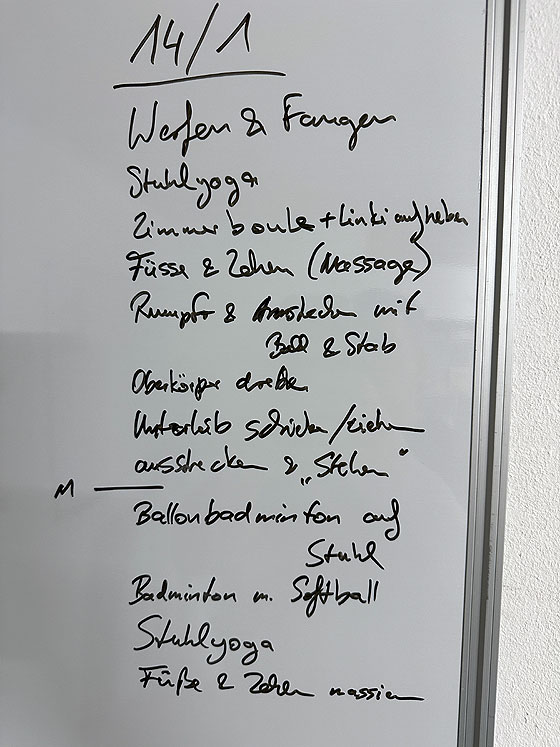 14/1
Werfen & Fangen
Stuhlyoga
Zimmerboule + Linki aufheben
Füsse & Zehen (Massage)
Rumpf & Armstrecken mit
Ball & Stab
Oberkörper drehen
Unterleib schieben/ziehen
ausstrecken & „Stehen"
M
Ballonbadminton auf
Stuhl
Badminton m. Softball
Stuhlyoga
Füße & Zehen massieren